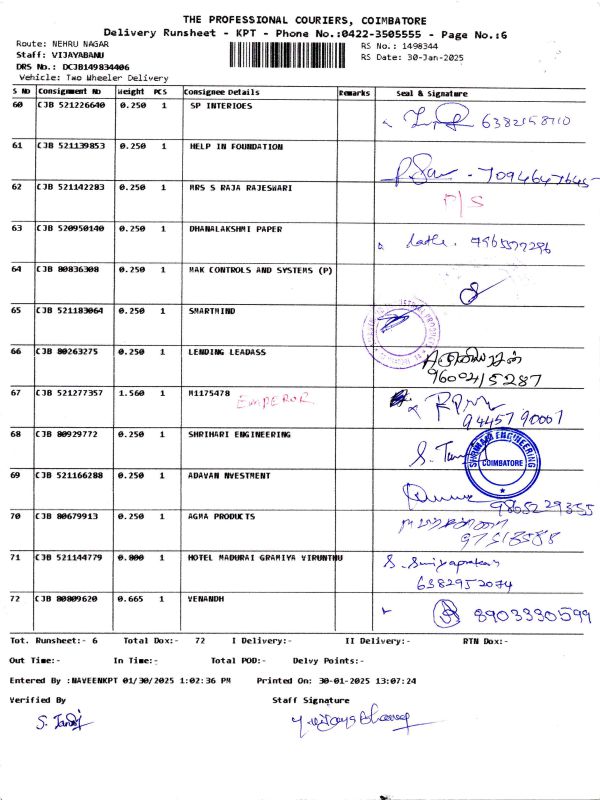 THE PROFESSIONAL COURIERS, COIMBATORE
Delivery Runsheet - KPT - Phone No.:0422-3505555 - Page No.:6
Route: NEHRU NAGAR RS No.: 1498344
Staff: VIJAYABANU RS Date: 30-Jan-2025
DRS No.: DCJB149834406
Vehicle: Two Wheeler Delivery
S No Consignment No Weight PCS Consignee Details Remarks Seal & Signature
60 CJB 521226640 0.250 1 SP INTERIOES
61 CJB 521139853 0.250 1 HELP IN FOUNDATION
7094647645
62 CJB 521142283 0.250 1 MRS S RAJA RAJESWARI
P/S
63 CJB 520950140 0.250 1 DHANALAKSHMI PAPER
64 CJB 80836308 0.250 1 MAK CONTROLS AND SYSTEMS (P)
65 CJB 521183064 0.250 1 SMARTMIND
66 CJB 80263275 0.250 1 LENDING LEADASS
9600415287
67 CJB 521277357 1.560 1 M1175478 EMPEROR
9445790007
68 CJB 80929772 0.250 1 SHRIHARI ENGINEERING
SHRIHARI ENGINEERING COIMBATORE
69 CJB 521166288 0.250 1 ADAVAN NVESTMENT
9865229355
70 CJB 80679913 0.250 1 AGMA PRODUCTS
71 CJB 521144779 0.800 1 HOTEL MADURAI GRAMIYA VIRUNTHU
6382952074
72 CJB 80809620 0.665 1 VENANDH
8903330599
Tot. Runsheet:- 6 Total Dox:- 72 I Delivery:- II Delivery:- RTN Dox:-
Out Time:- In Time:- Total POD:- Delvy Points:-
Entered By :NAVEENKPT 01/30/2025 1:02:36 PM Printed On: 30-01-2025 13:07:24
Verified By Staff Signature